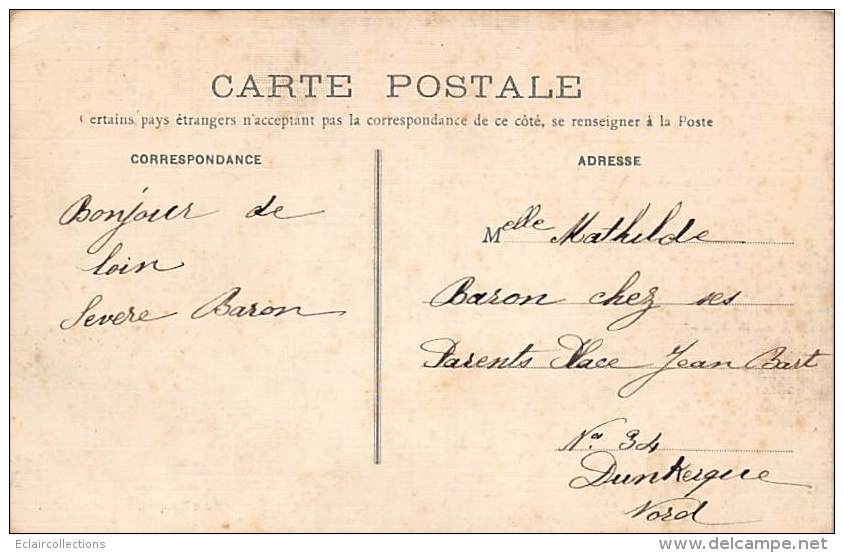 CARTE POSTALE
Certains pays étrangers n'acceptant pas la correspondance de ce côté, se renseigner à la Poste
CORRESPONDANCE
Bonjour de
loin
Severe Baron
ADRESSE
Melle Mathilde
Baron chez ses
Parents Place Jean Bart
No 34
Dunkerque
Nord
Eclaircollections
www.delcampe.net